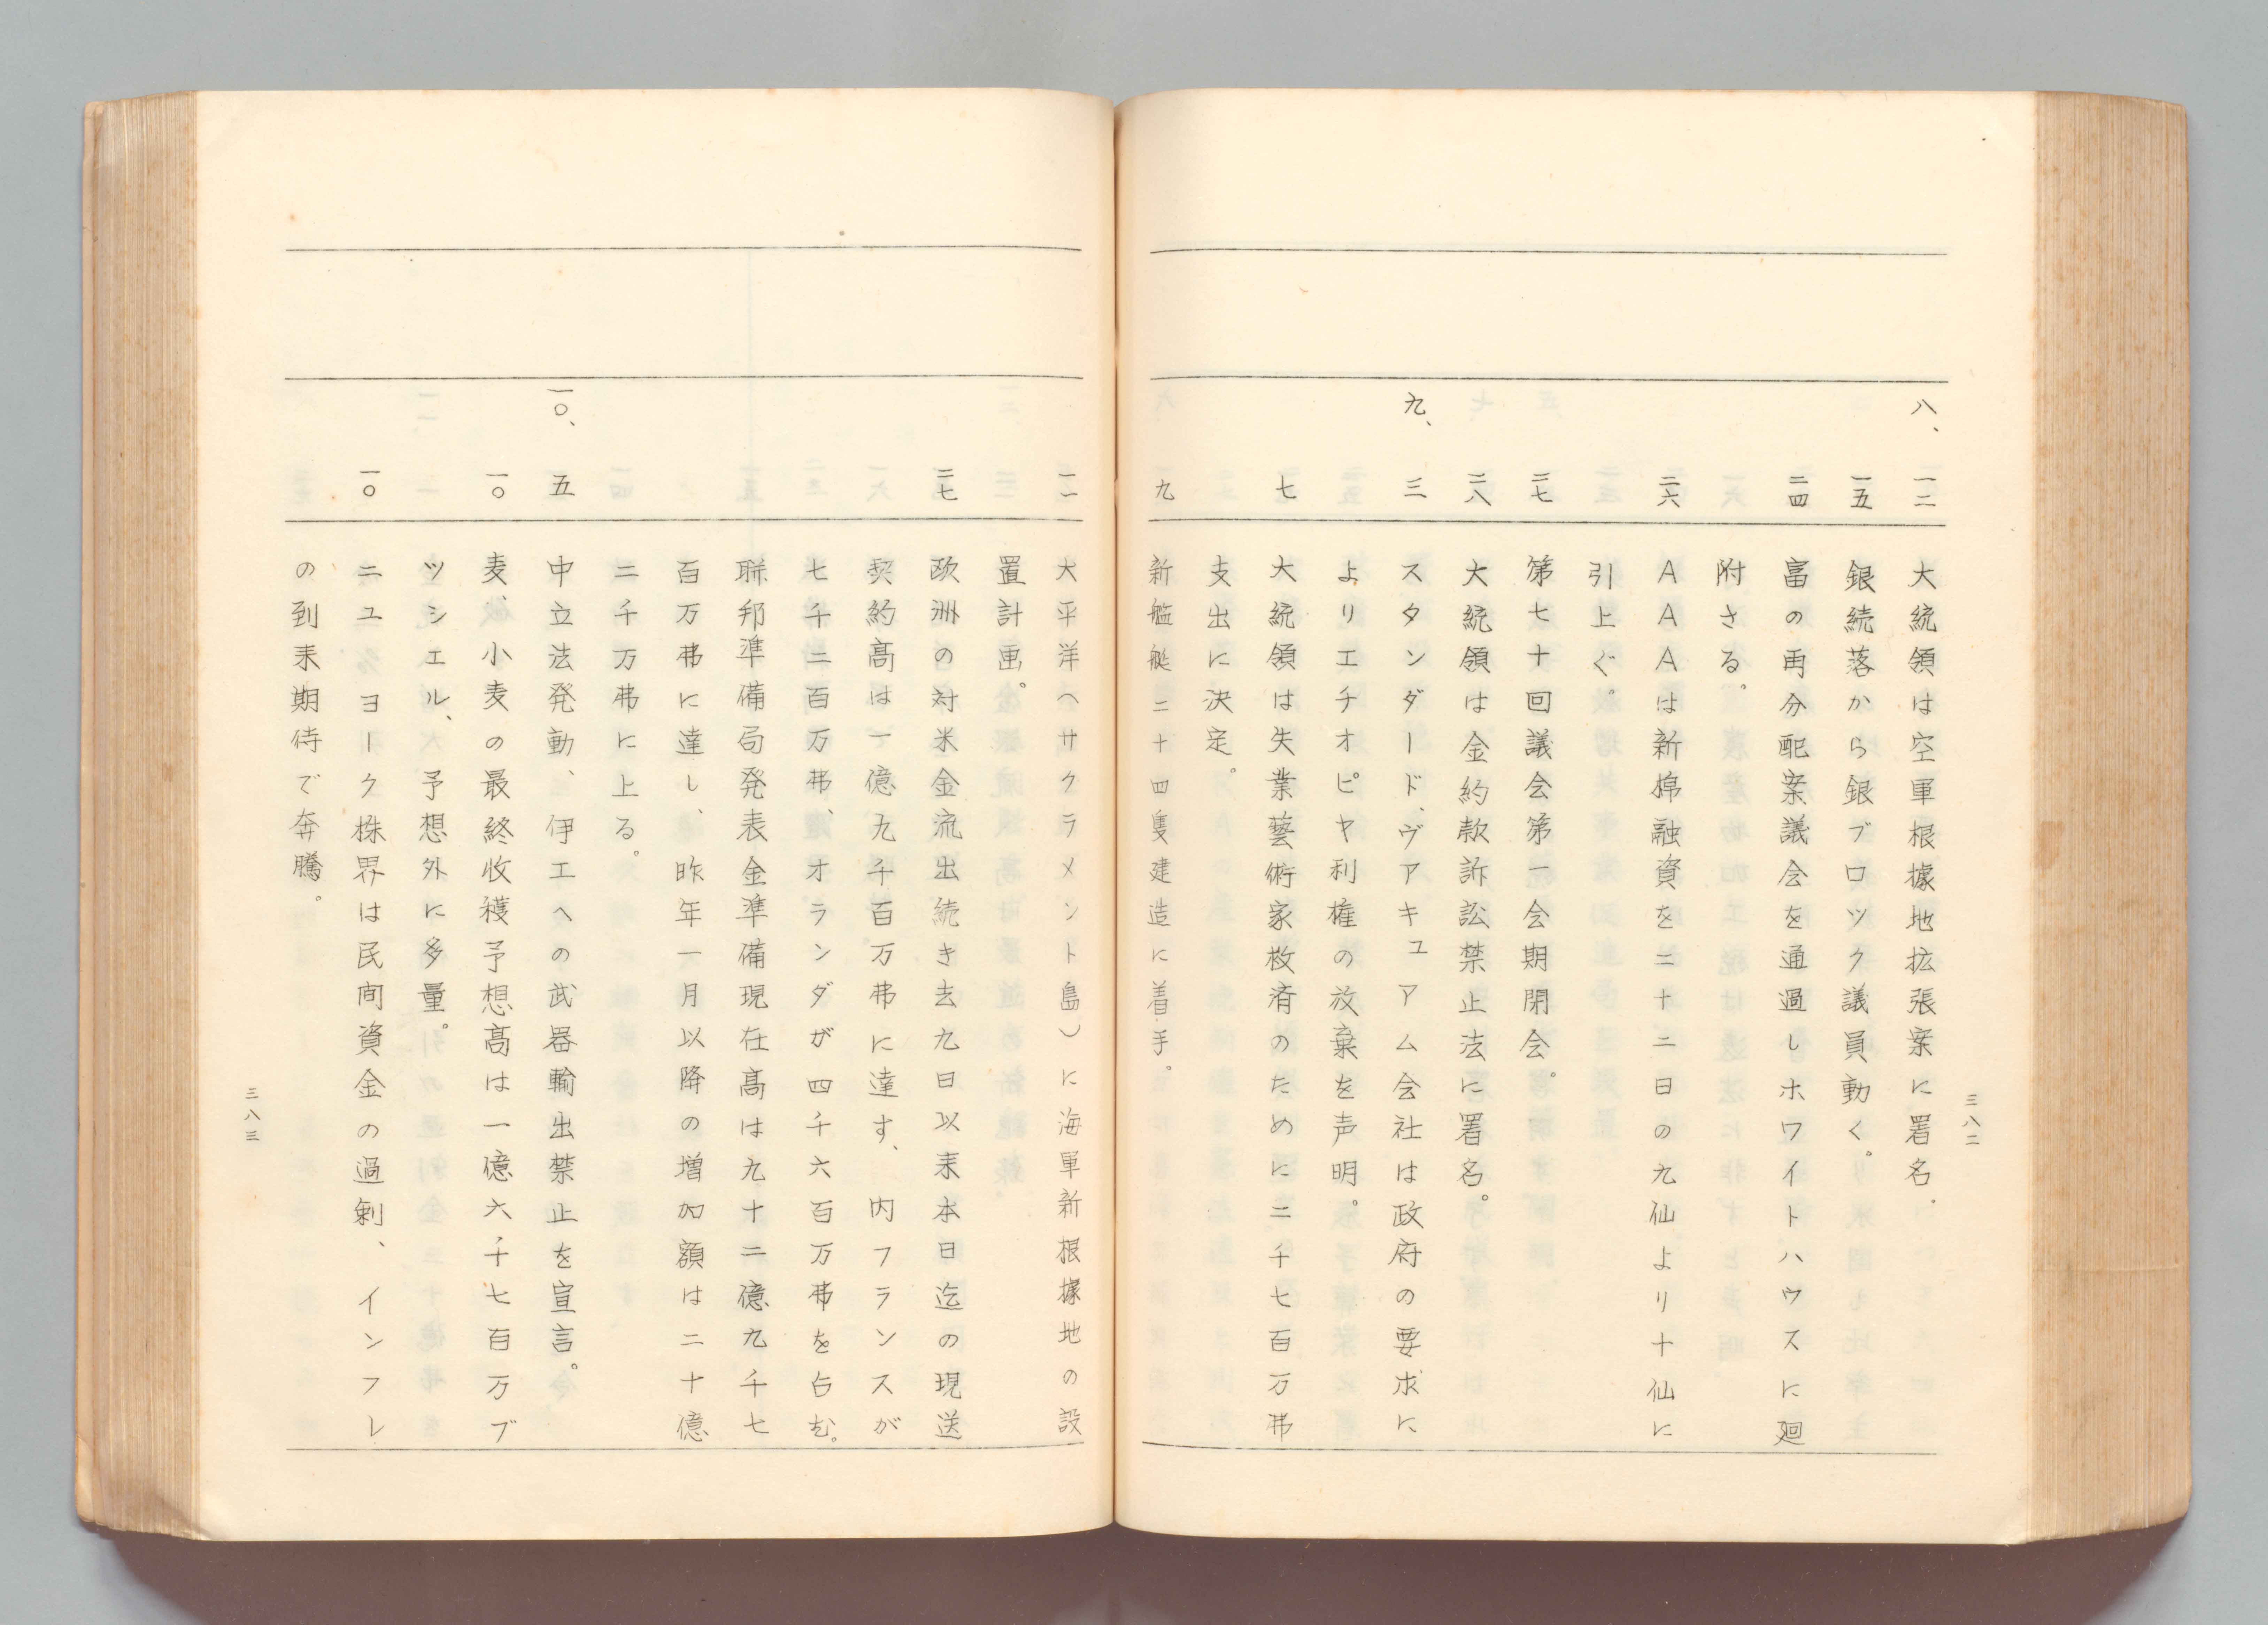 三八二
八、 一二 大統領は空軍根據地拡張案に署名.
一五 銀続落から銀ブロツク議員動く。
二四 富の再分配案議会を通過しホワイトハウスに廻
附さる。
二六 AAAは新棉融資を二十二日の九仙より十仙に
引上ぐ。
二七 第七十回議会第一会期閉会。
二八 大統領は金約款訴訟禁止法に署名。
九、 三 スタンダード、ヴアキユアム会社は政府の要求に
よりエチオピヤ利権の放棄を声明。
七 大統領は失業藝術家救済のために二千七百万弗
支出に決定。
九 新艦艇二十四隻建造に着手。
一一 大平洋へサクラメント島)に海軍新根據地の設
置計画。
二七 欧洲の対米金流出続き去九日以来本日迄の現送
契約高は一億九千百万弗に達す、内フランスが
七千二百万弗、オランダが四千六百万弗を占む。
聯邦準備局発表金準備現在高は九十二億九千七
百万弗に達し、昨年一月以降の増加額は二十億
二千万弗に上る。
一〇、 五 中立法発動、伊エへの武器輸出禁止を宣言。
一〇 麦、小麦の最終收穫予想高は一億六千七百万ブ
ツシエル、予想外に多量。
一〇 ニユヨーク株界は民間資金の過剰、インフレ
の到来期待で奔騰。
三八三